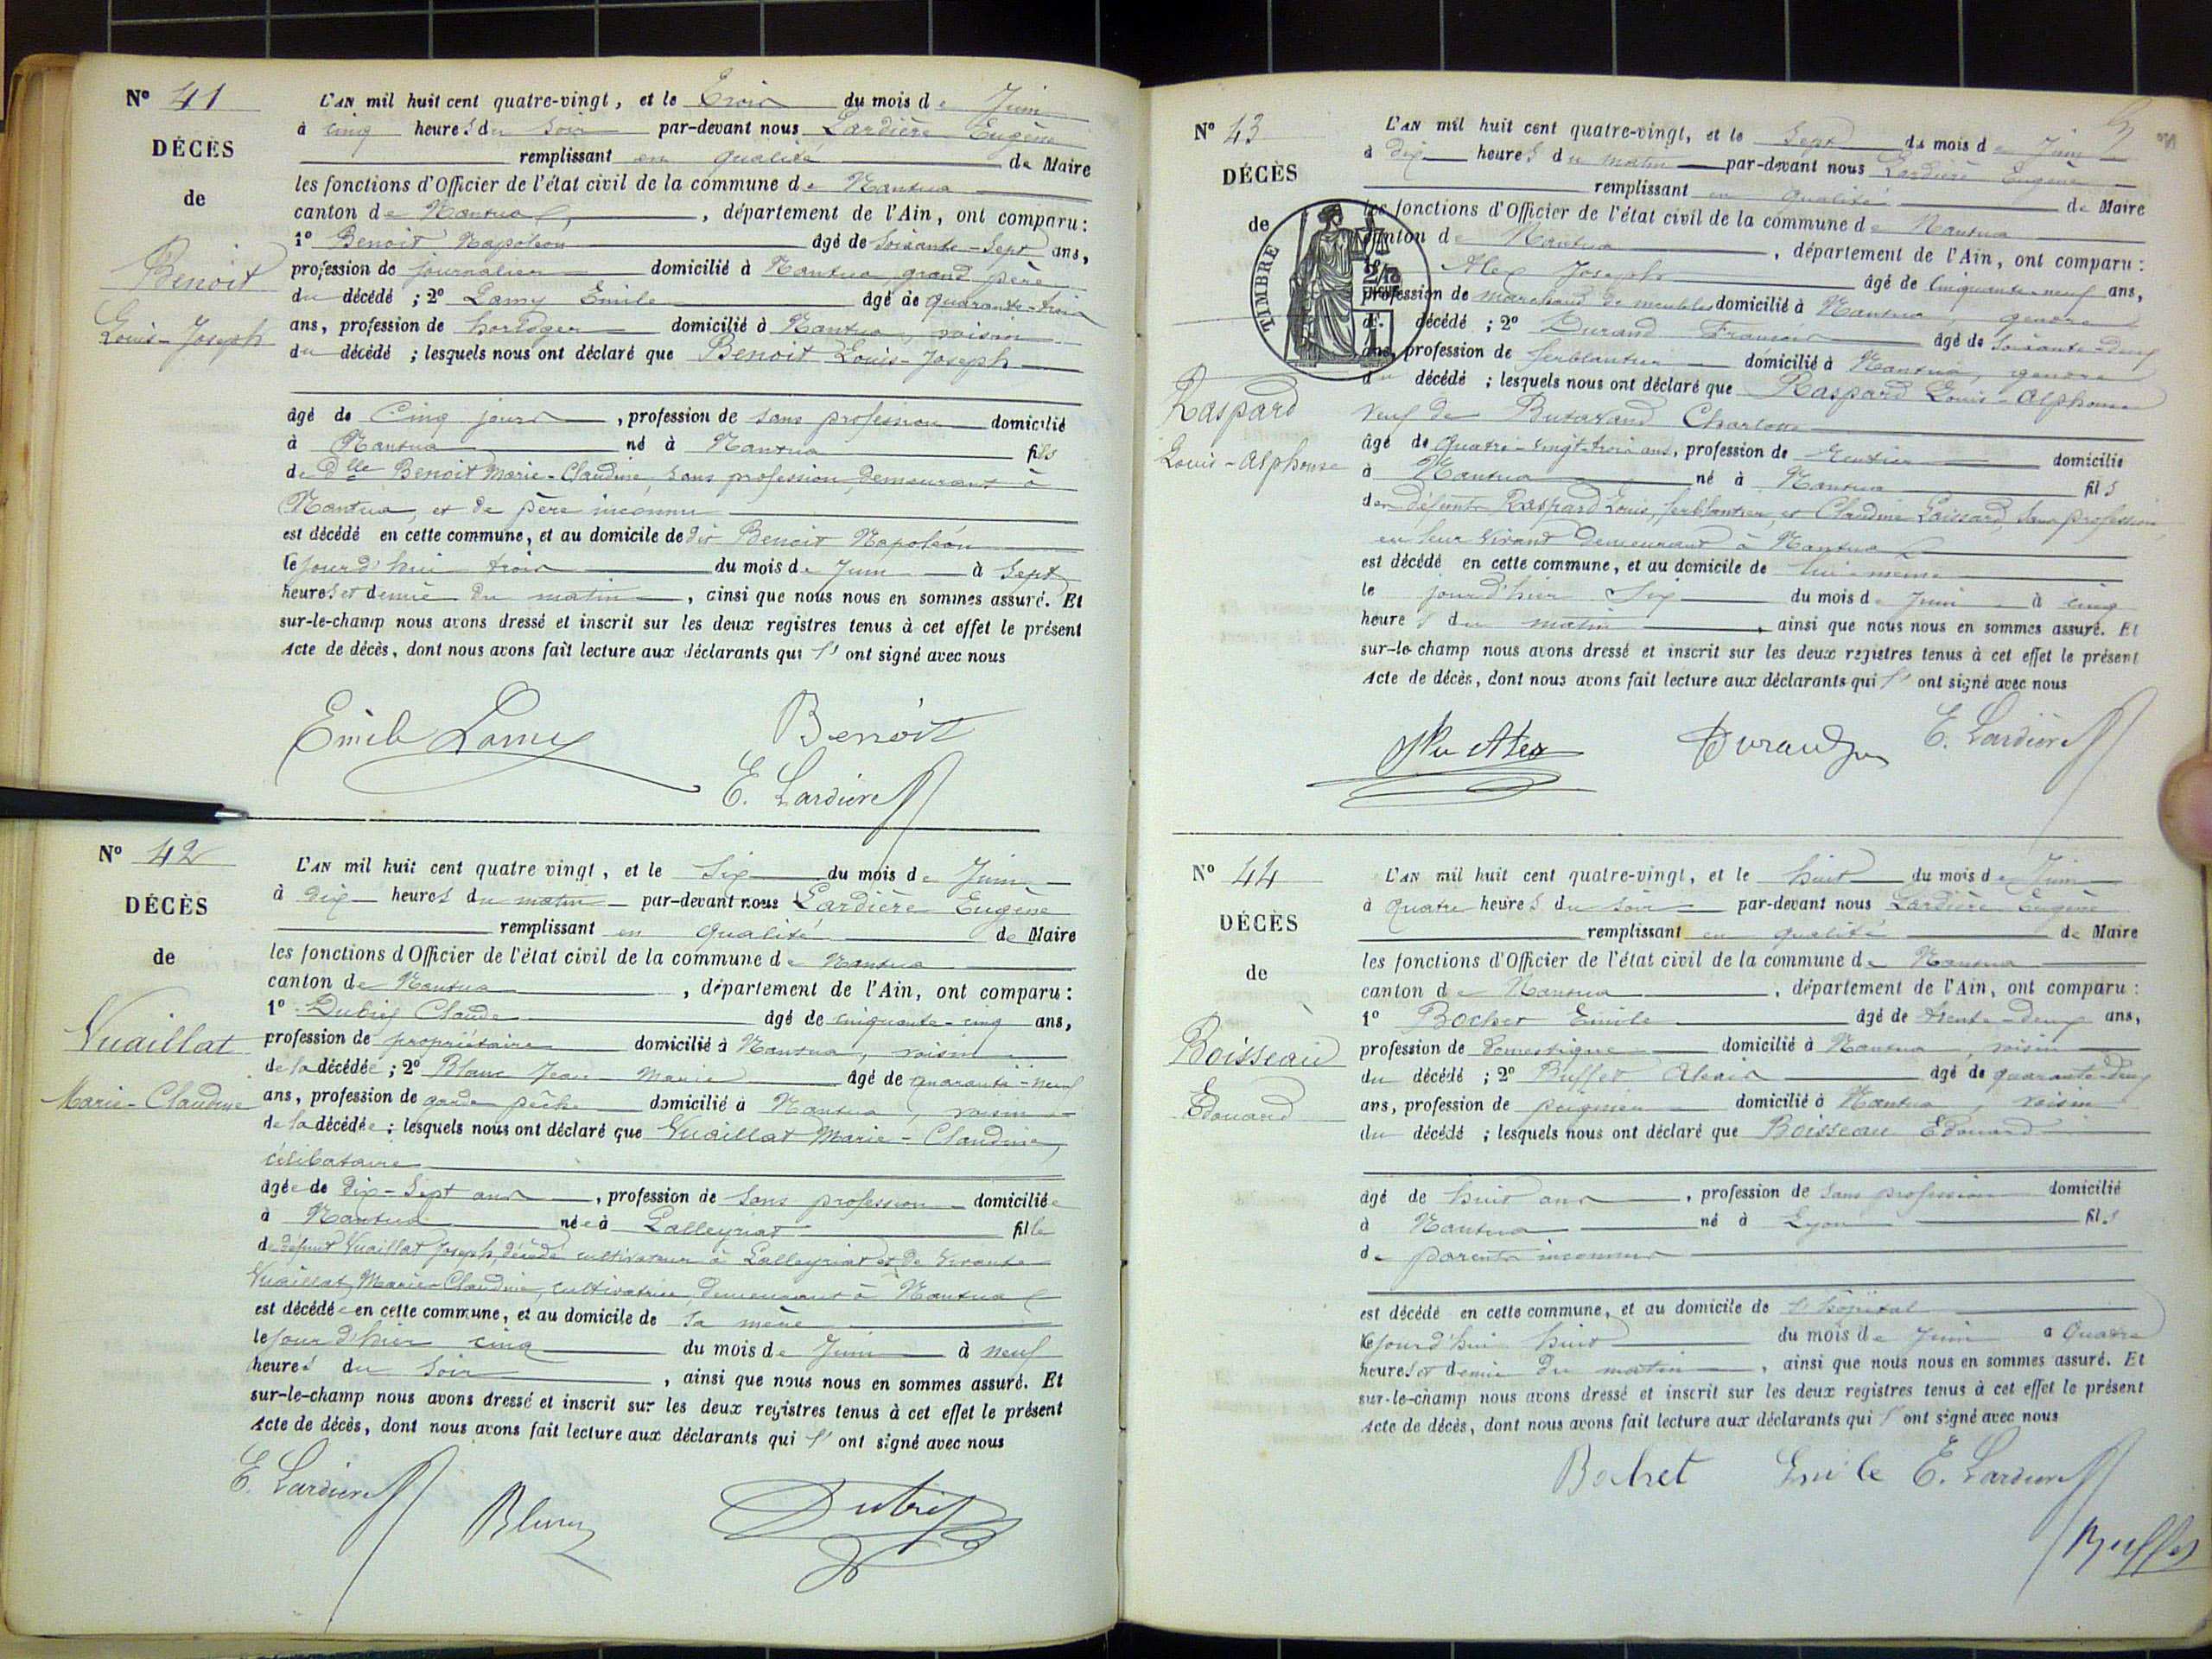 N° 41
DÉCÈS
de
Benoit
Louis-Joseph
L'AN mil huit cent quatre-vingt, et le Trois du mois de Juin
à cinq heures du soir par-devant nous Lardière Eugène
remplissant en qualité de Maire
les fonctions d'Officier de l'état civil de la commune de Nantua
canton de Nantua, département de l'Ain, ont comparu :
1° Benoit Napoléon âgé de soixante-sept ans,
profession de journalier domicilié à Nantua, grand père
du décédé ; 2° Lamy Emile âgé de quarante-trois
ans, profession de horloger domicilié à Nantua, voisin
du décédé ; lesquels nous ont déclaré que Benoit Louis-Joseph
âgé de Cinq jours, profession de sans profession domicilié
à Nantua né à Nantua fils
de Dlle Benoit Marie-Claudine, sans profession, demeurant à
Nantua, et de père inconnu
est décédé en cette commune, et au domicile de dit Benoit Napoléon
le jour d'hui trois du mois de Juin à sept
heures et demie du matin, ainsi que nous nous en sommes assuré. Et
sur-le-champ nous avons dressé et inscrit sur les deux registres tenus à cet effet le présent
Acte de décès, dont nous avons fait lecture aux déclarants qui l' ont signé avec nous
Emile Lamy Benoit
E. Lardière
N° 42
DÉCÈS
de
Vuaillat
Marie-Claudine
L'AN mil huit cent quatre vingt, et le Six du mois de Juin
à dix heures du matin par-devant nous Lardière Eugène
remplissant en qualité de Maire
les fonctions d'Officier de l'état civil de la commune de Nantua
canton de Nantua, département de l'Ain, ont comparu :
1° Dubief Claude âgé de cinquante-cinq ans,
profession de propriétaire domicilié à Nantua, voisin
de la décédée ; 2° Blanc Jean Marie âgé de quarante-neuf
ans, profession de garde pêche domicilié à Nantua, voisin
de la décédée ; lesquels nous ont déclaré que Vuaillat Marie-Claudine,
célibataire
âgée de Dix-Sept ans, profession de sans profession domiciliée
à Nantua née à Lalleyriat fille
de défunt Vuaillat Joseph, décédé cultivateur à Lalleyriat et de vivante
Vuaillat Marie-Claudine, cultivatrice, demeurant à Nantua
est décédée en cette commune, et au domicile de sa mère
le jour d'hier cinq du mois de Juin à neuf
heures du soir, ainsi que nous nous en sommes assuré. Et
sur-le-champ nous avons dressé et inscrit sur les deux registres tenus à cet effet le présent
Acte de décès, dont nous avons fait lecture aux déclarants qui l' ont signé avec nous
E. Lardière Blanc Dubief
N° 43
DÉCÈS
de
TIMBRE
Raspard
Louis-Alphonse
L'AN mil huit cent quatre-vingt, et le Sept du mois de Juin
à dix heures du matin par-devant nous Lardière Eugène
remplissant en qualité de Maire
les fonctions d'Officier de l'état civil de la commune de Nantua
canton de Nantua, département de l'Ain, ont comparu :
Alex Joseph âgé de cinquante-neuf ans,
profession de marchand de meubles domicilié à Nantua, gendre
décédé ; 2° Durand François âgé de soixante-deux
ans, profession de ferblantier domicilié à Nantua, gendre
du décédé ; lesquels nous ont déclaré que Raspard Louis-Alphonse
veuf de Butavand Charlotte
âgé de quatre-vingt-trois ans, profession de Rentier domicilié
à Nantua né à Nantua fils
des défunts Raspard Louis, ferblantier, et Claudine Loissard, sans profession,
en leur vivant demeurant à Nantua
est décédé en cette commune, et au domicile de lui-même
le jour d'hier Six du mois de Juin à cinq
heures du matin, ainsi que nous nous en sommes assuré. Et
sur-le-champ nous avons dressé et inscrit sur les deux registres tenus à cet effet le présent
Acte de décès, dont nous avons fait lecture aux déclarants qui l' ont signé avec nous
Alex Durand E. Lardière
N° 44
DÉCÈS
de
Boisseau
Edouard
L'AN mil huit cent quatre-vingt, et le huit du mois de Juin
à quatre heures du soir par-devant nous Lardière Eugène
remplissant en qualité de Maire
les fonctions d'Officier de l'état civil de la commune de Nantua
canton de Nantua, département de l'Ain, ont comparu :
1° Bochet Emile âgé de trente-deux ans,
profession de Domestique domicilié à Nantua, voisin
du décédé ; 2° Buffet Alexis âgé de quarante-deux
ans, profession de peignier domicilié à Nantua, voisin
du décédé ; lesquels nous ont déclaré que Boisseau Edouard
âgé de huit ans, profession de sans profession domicilié
à Nantua né à Lyon fils
de parents inconnus
est décédé en cette commune, et au domicile de l'hôpital
le jour d'hui huit du mois de Juin à Quatre
heures et demie du matin, ainsi que nous nous en sommes assuré. Et
sur-le-champ nous avons dressé et inscrit sur les deux registres tenus à cet effet le présent
Acte de décès, dont nous avons fait lecture aux déclarants qui l' ont signé avec nous
Bochet Emile E. Lardière
Buffet